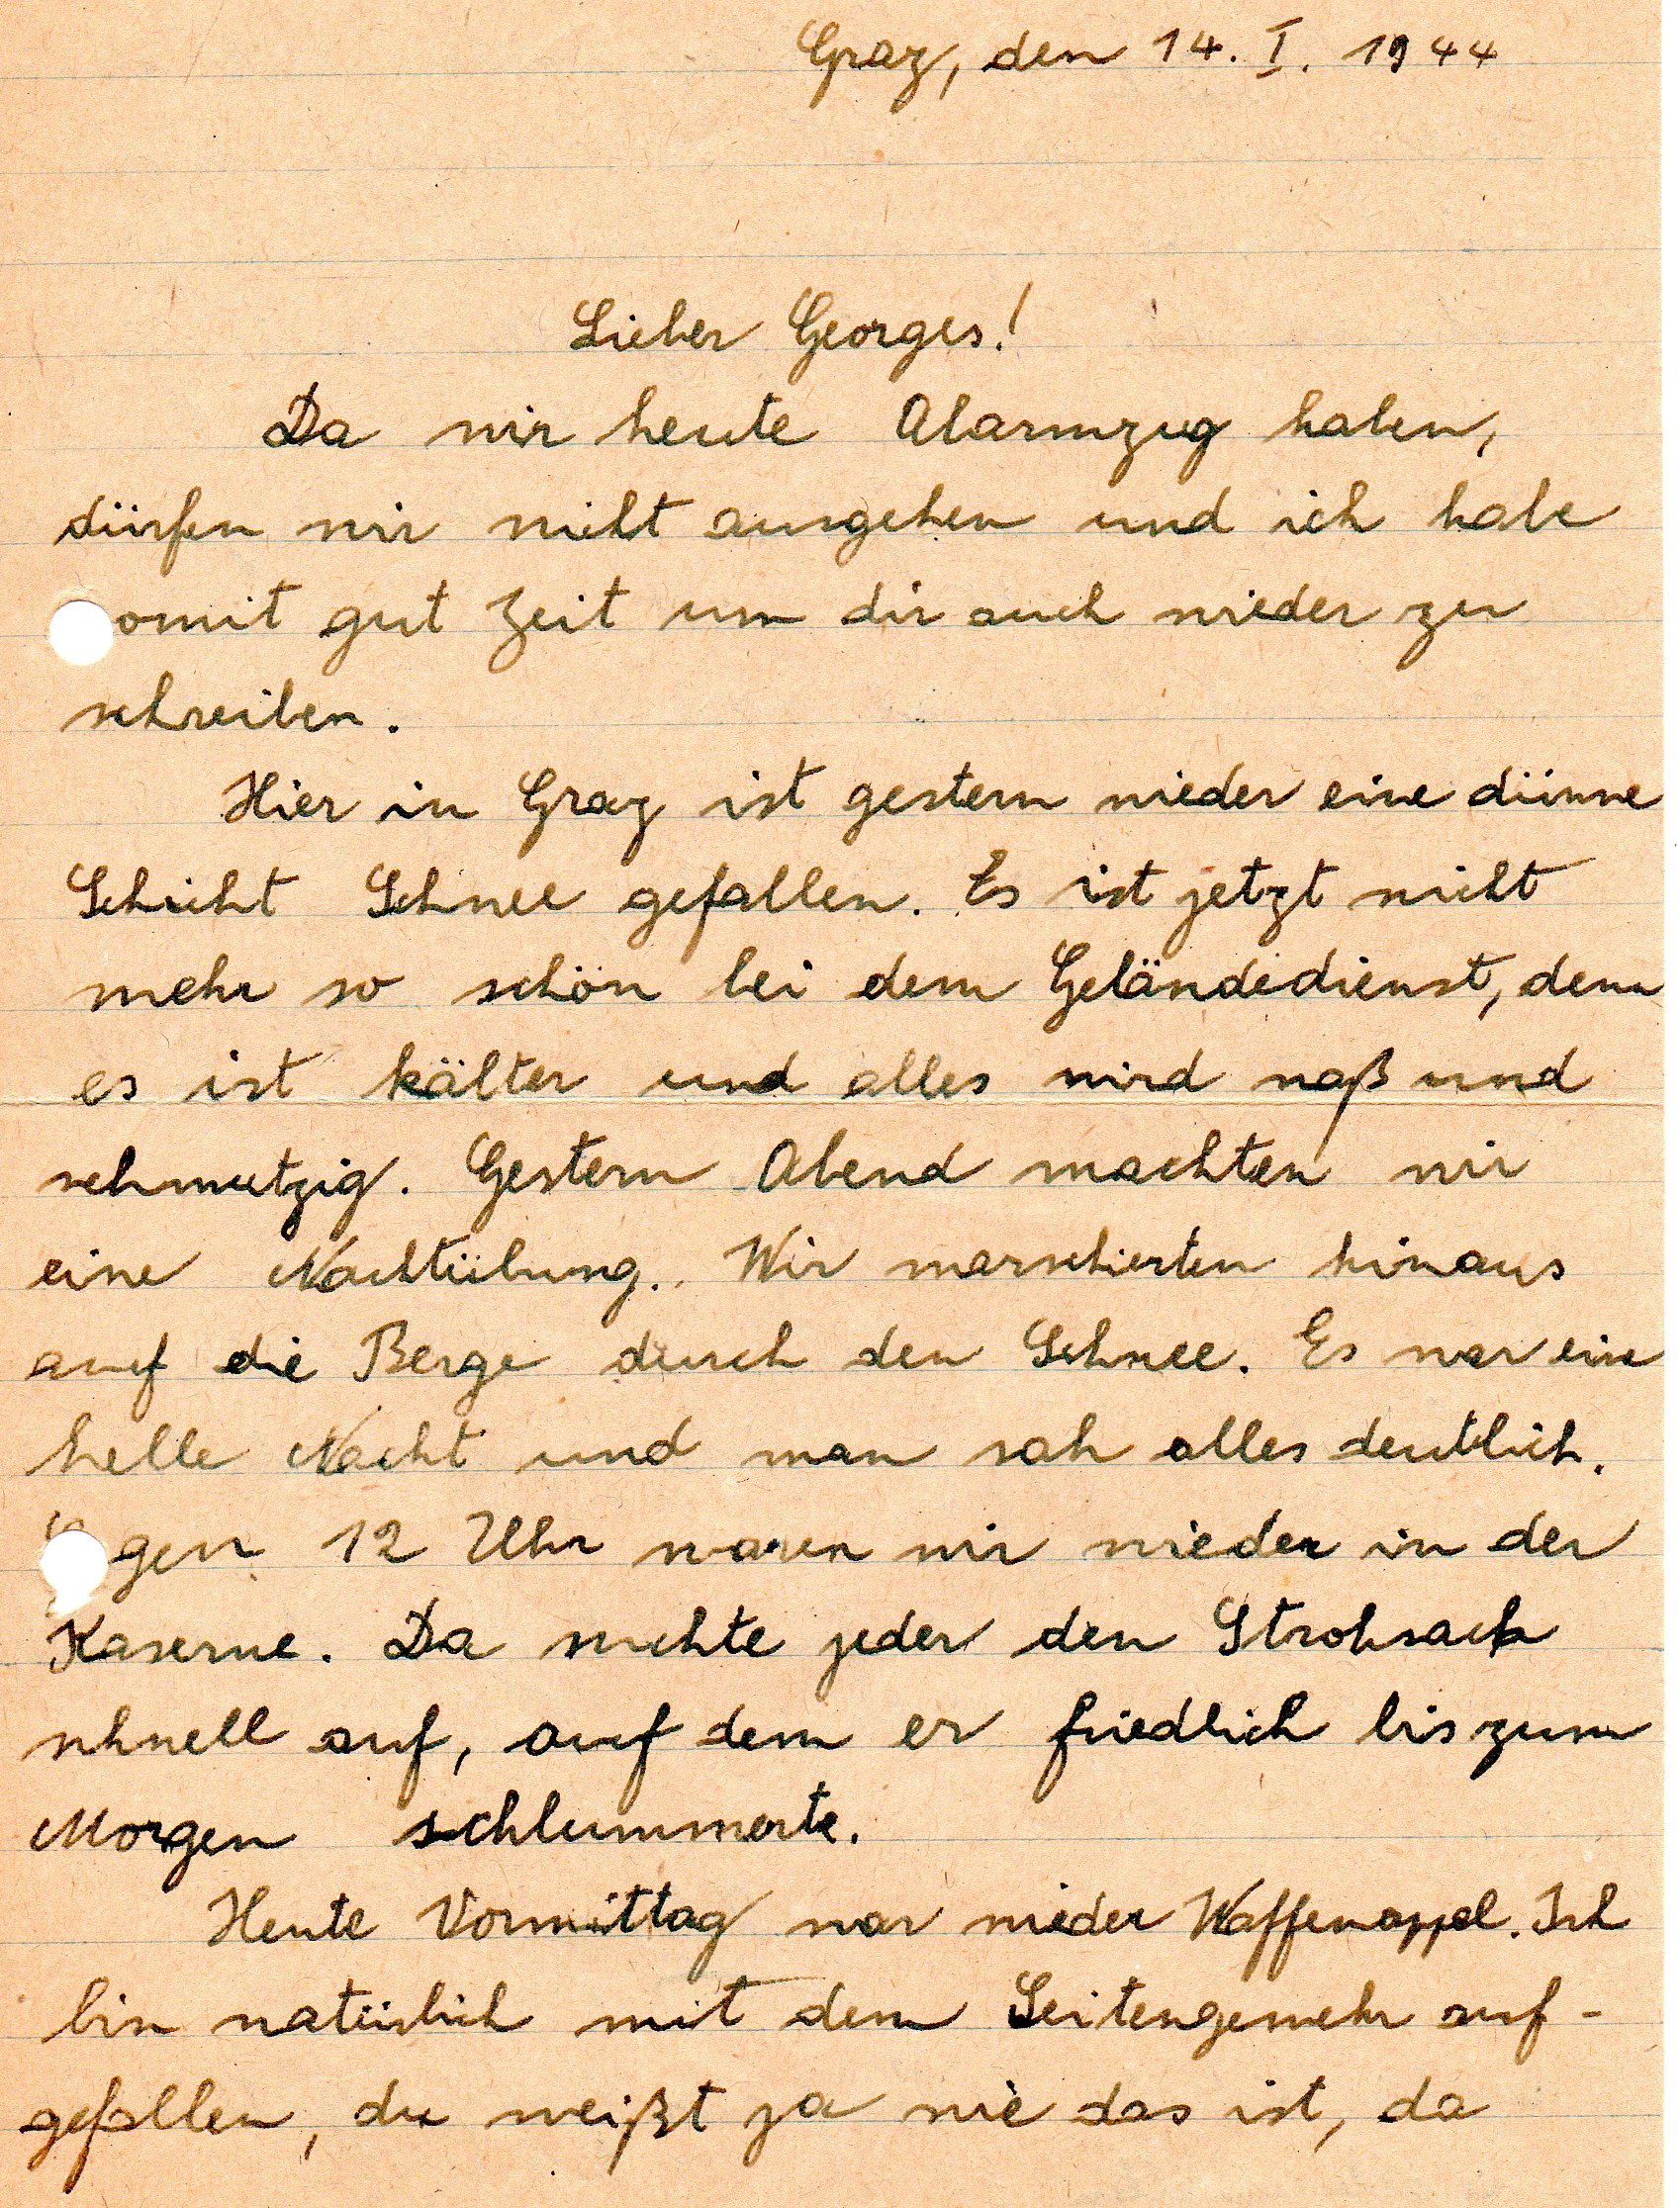 Graz, den 14. I. 1944
Lieber Georges!
Da wir heute Alarmzug haben,
dürfen wir nicht ausgehen und ich habe
omit gut Zeit um dir auch wieder zu
schreiben.
Hier in Graz ist gestern wieder eine dünne
Schicht Schnee gefallen. Es ist jetzt nicht
mehr so schön bei dem Geländedienst, denn
es ist kälter und alles wird naß und
schmutzig. Gestern Abend machten wir
eine Nachtübung. Wir marschierten hinaus
auf die Berge durch den Schnee. Es war eine
helle Nacht und man sah alles deutlich.
gen 12 Uhr waren wir wieder in der
Kaserne. Da suchte jeder den Strohsack
schnell auf, auf dem er friedlich bis zum
Morgen schlummerte.
Heute Vormittag war wieder Waffenappel. Ich
bin natürlich mit dem Seitengewehr auf-
gefallen, du weißt ja wie das ist, da